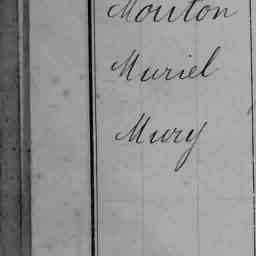 Mouton
Muriel
Mury